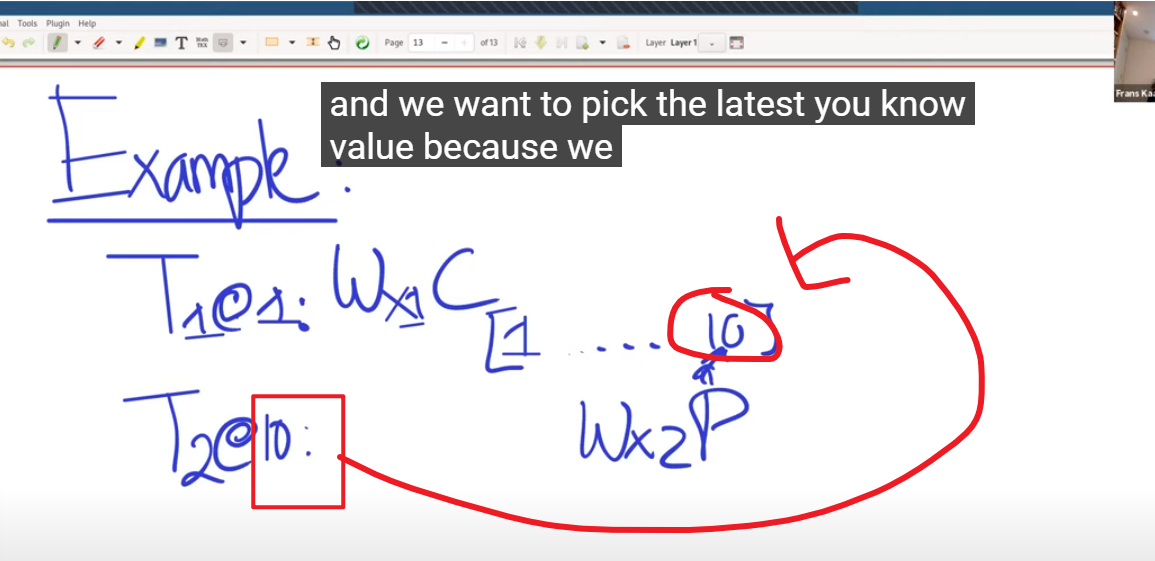 al Tools Plugin Help
T Math TEX Page 13 of 13 Layer Layer 1
Frans Ka
and we want to pick the latest you know
value because we
Example:
T1@1: Wx1 C
[1 ..... 10]
T2@10:
Wx2P